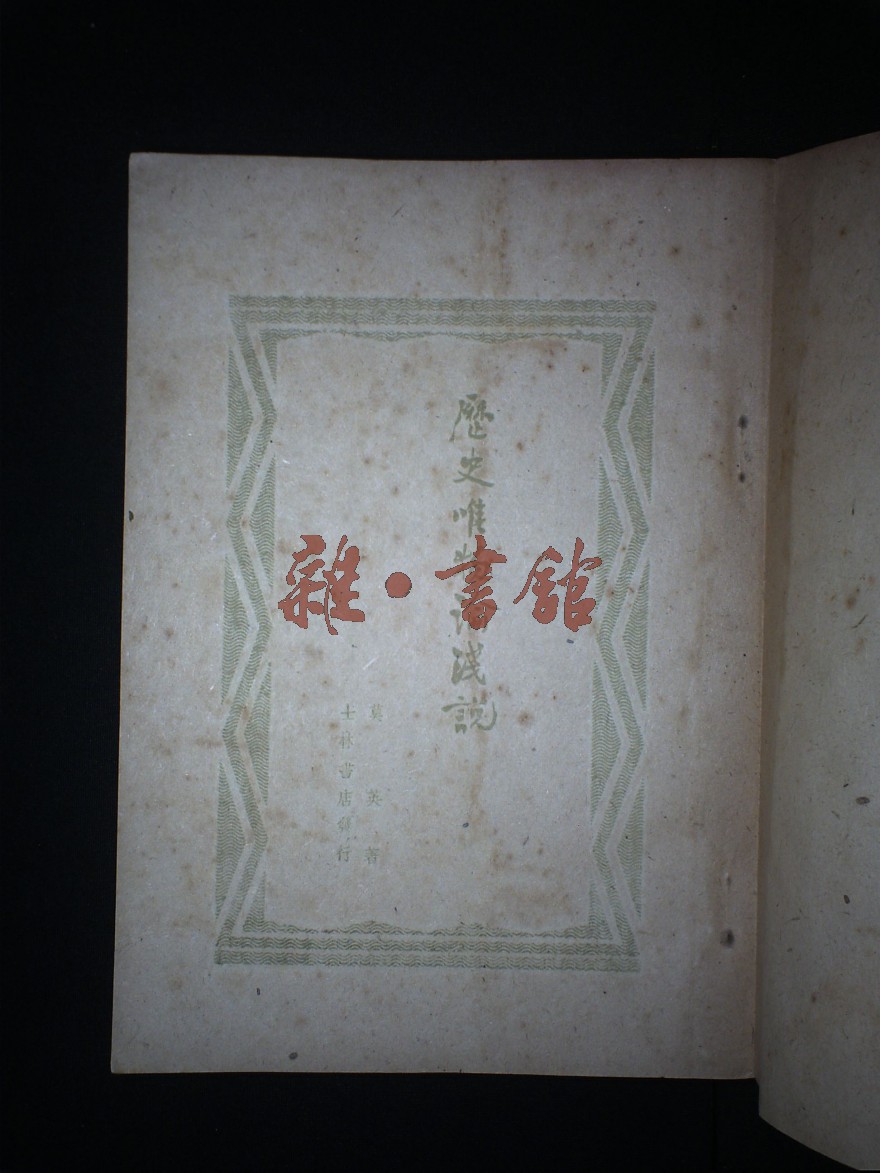 歷史唯物論淺說
莫英著
士林書店發行
雜·書館